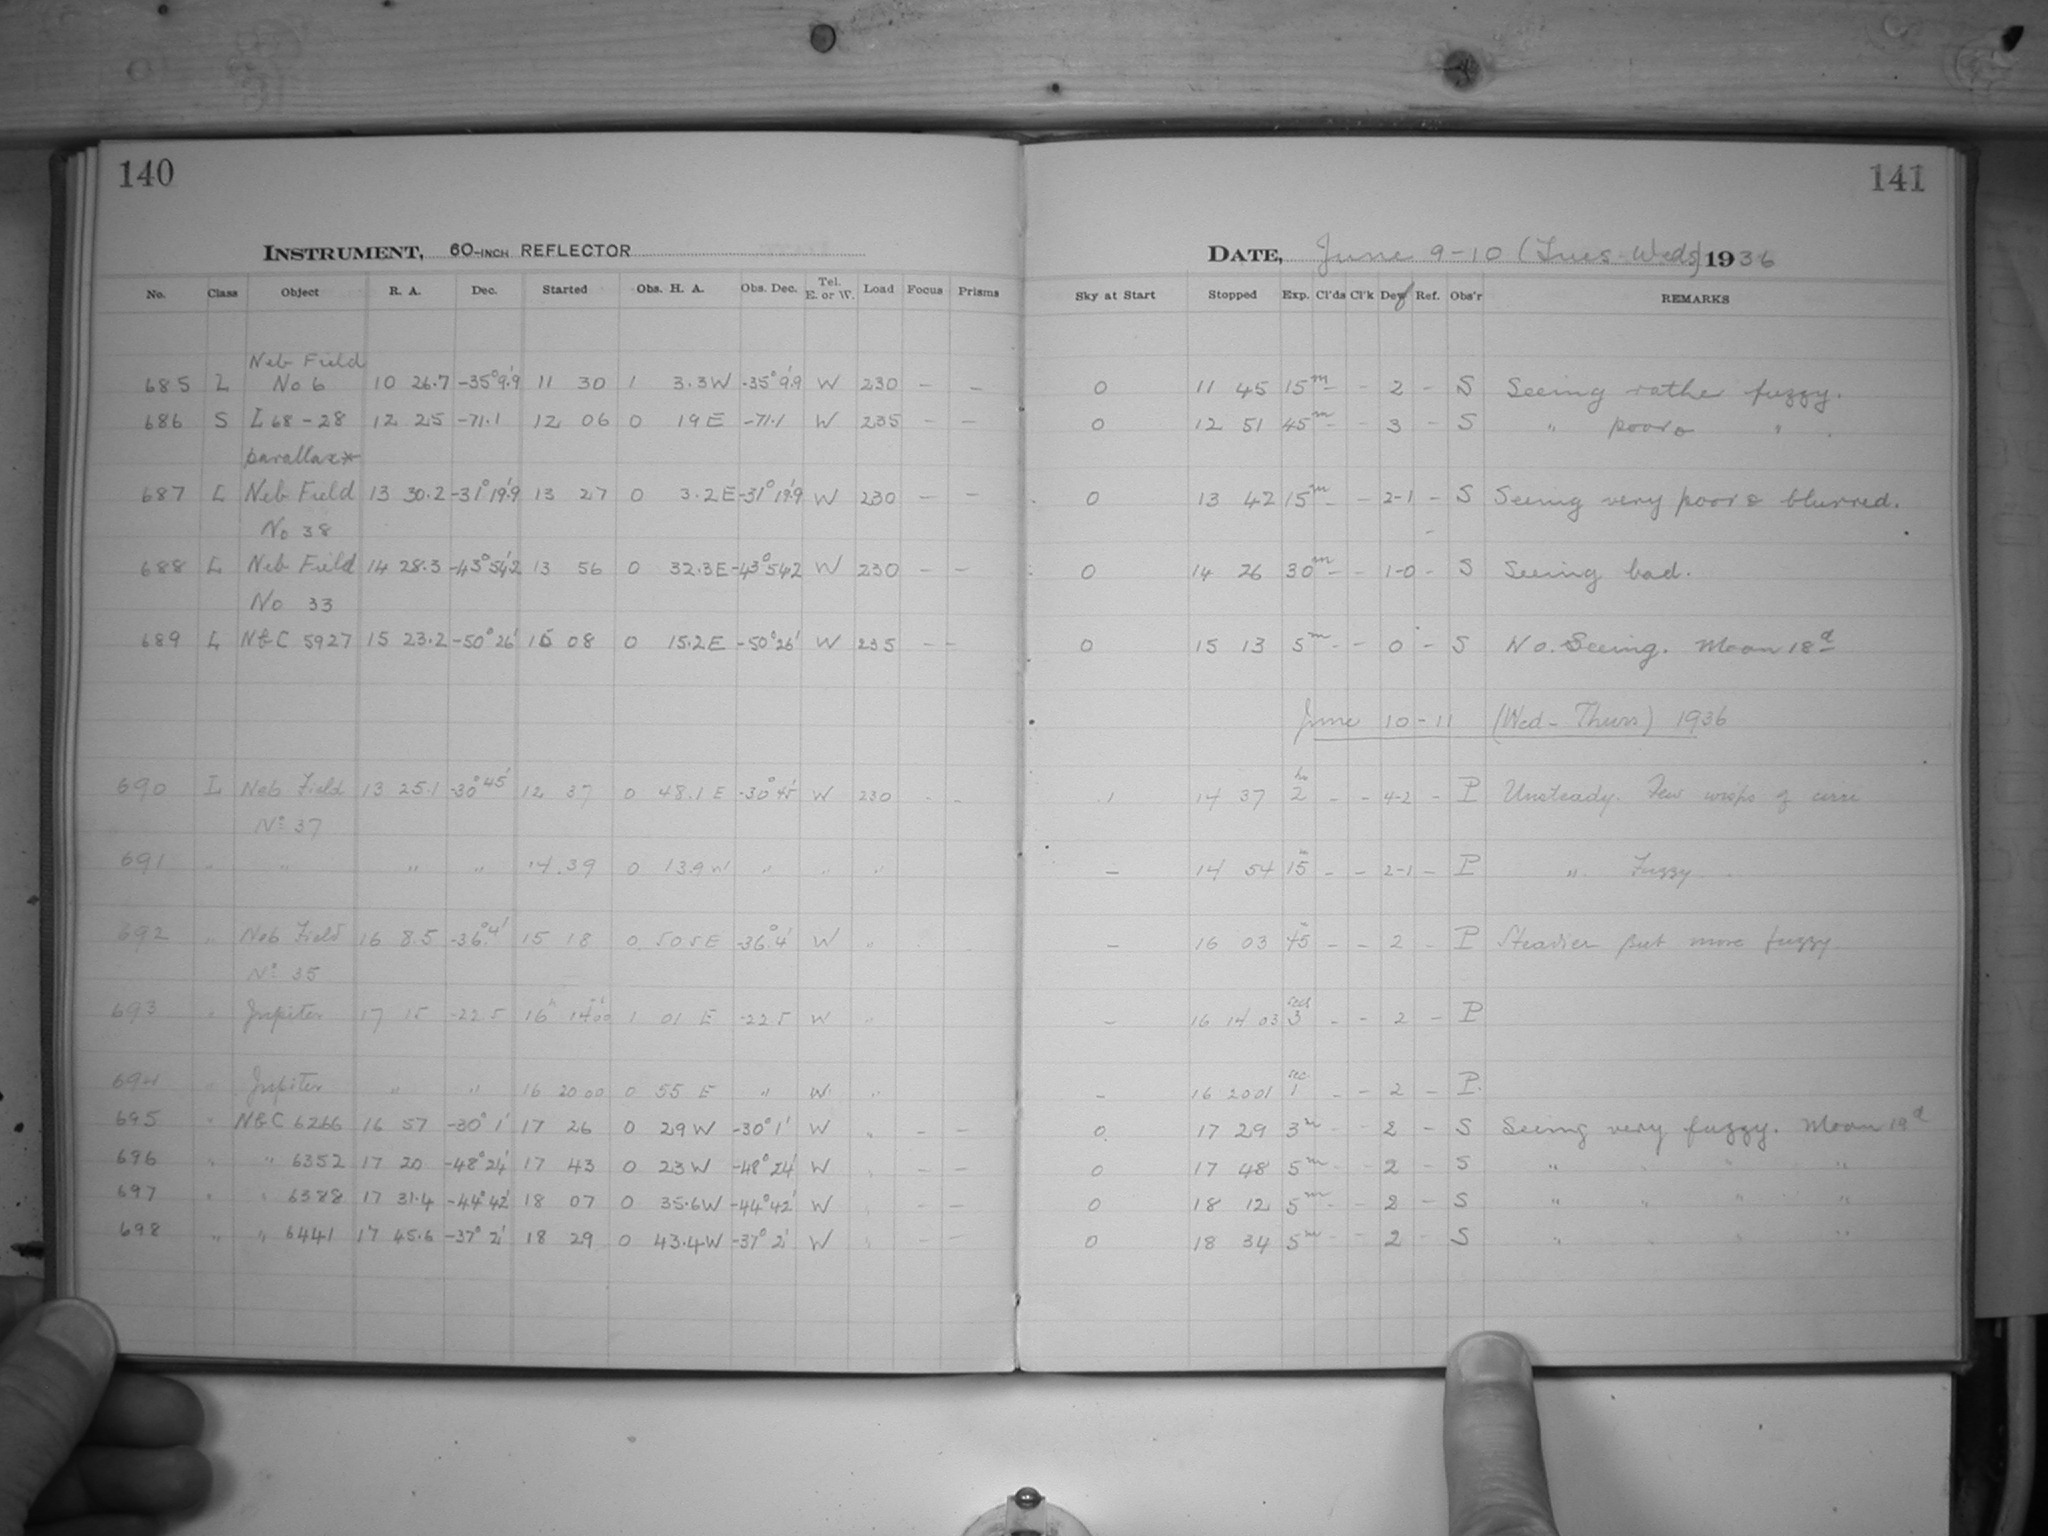 140
INSTRUMENT, 60-INCH REFLECTOR
No. Class Object R. A. Dec. Started Obs. H. A. Obs. Dec. Tel. E. or W. Load Focus Prisms
Neb Field
685 L No 6 10 26.7 -35°9'.9 11 30 1 3.3W -35°9'.9 W 230 - -
686 S L 68-28 12 25 -71.1 12 06 0 19E -71.1 W 235 - -
parallax*
687 L Neb Field 13 30.2 -31°19'.9 13 27 0 3.2E -31°19'.9 W 230 - -
No 38
688 L Neb Field 14 28.3 -43°54'.2 13 56 0 32.3E -43°54.2 W 230 - -
No 33
689 L NGC 5927 15 23.2 -50°26' 15 08 0 15.2E -50°26' W 235 - -
690 L Neb Field 13 25.1 -30°45' 12 37 0 48.1E -30°45' W 230 - -
No 37
691 " " " " 14.39 0 13.9W " " "
692 " Neb Field 16 8.5 -36°.4' 15 18 0 50.5E -36°.4' W "
No 35
693 " Jupiter 17 15 -22.5 16h 14 00 1 01 E -22.5 W "
694 " Jupiter " " 16 20 00 0 55 E " W "
695 " NGC 6266 16 57 -30°1' 17 26 0 29W -30°1' W " - -
696 " " 6352 17 20 -48°24' 17 43 0 23W -48°24' W " - -
697 " " 6388 17 31.4 -44°42' 18 07 0 35.6W -44°42' W " - -
698 " " 6441 17 45.6 -37°2' 18 29 0 43.4W -37°2' W " - -
141
DATE, June 9-10 (Tues-Weds) 1936
Sky at Start Stopped Exp. Cl'ds Cl'k Dew Ref. Obs'r REMARKS
0 11 45 15m - - 2 - S Seeing rather fuzzy.
0 12 51 45m - - 3 - S " poor & " .
0 13 42 15m - - 2-1 - S Seeing very poor & blurred.
0 14 26 30m - - 1-0 - S Seeing bad.
0 15 13 5m - - 0 - S No. Seeing. Moon 18d
June 10-11 (Wed-Thurs) 1936
.1 14 37 2 - - 4-2 - P Unsteady. Few wisps of cirri
- 14 54 15m - - 2-1 - P " Fuzzy
- 16 03 45m - - 2 - P Steadier but more fuzzy
- 16 14 03 3 secs - - 2 - P
- 16 20 01 1 sec - - 2 - P.
0 17 29 3m - - 2 - S Seeing very fuzzy. Moon 19d
0 17 48 5m - - 2 - S " " " "
0 18 12 5m - - 2 - S " " " "
0 18 34 5m - - 2 - S " " " "